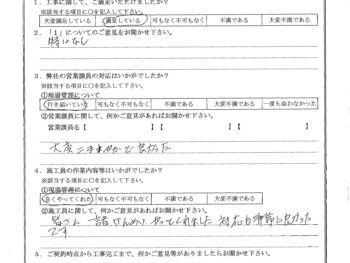 1. 工事に関して、ご満足いただけましたか？
※該当する項目に○を記入して下さい。
大変満足している 満足している 可もなく不可もなく 不満である 大変不満である
2. 「1」についてのご意見をお聞かせ下さい。
特になし
3. 弊社の営業課員の対応はいかがでしたか？
※該当する項目に○を記入して下さい。
①現場管理について
行き届いている 可もなく不可もなく 不満である 大変不満である 一度も会わなかった
②営業課員に関して、何かご意見があればお聞かせ下さい。
営業課員名 【 】【 】【 】
大変こまやかで良かった
4. 施工員の作業内容等はいかがでしたか？
※該当する項目に○を記入して下さい。
①現場管理について
良くやってくれた 可もなく不可もなく 不満である 大変不満である
②施工員に関して、何かご意見があればお聞かせ下さい。
皆さん やってくれました 対応も 良かった
です
5. ご契約時点から工事完工まで、何かご意見等がありましたらお聞かせ下さい。